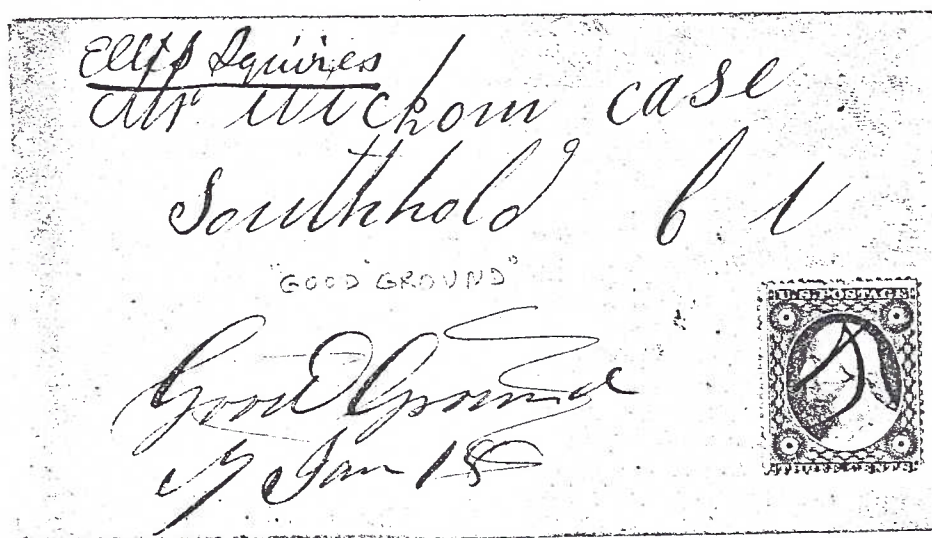 Ellis Squires
Mr Wickom case
Southhold L I
"GOOD GROUND"
Good Ground
Jan 18
U.S. POSTAGE
THREE CENTS